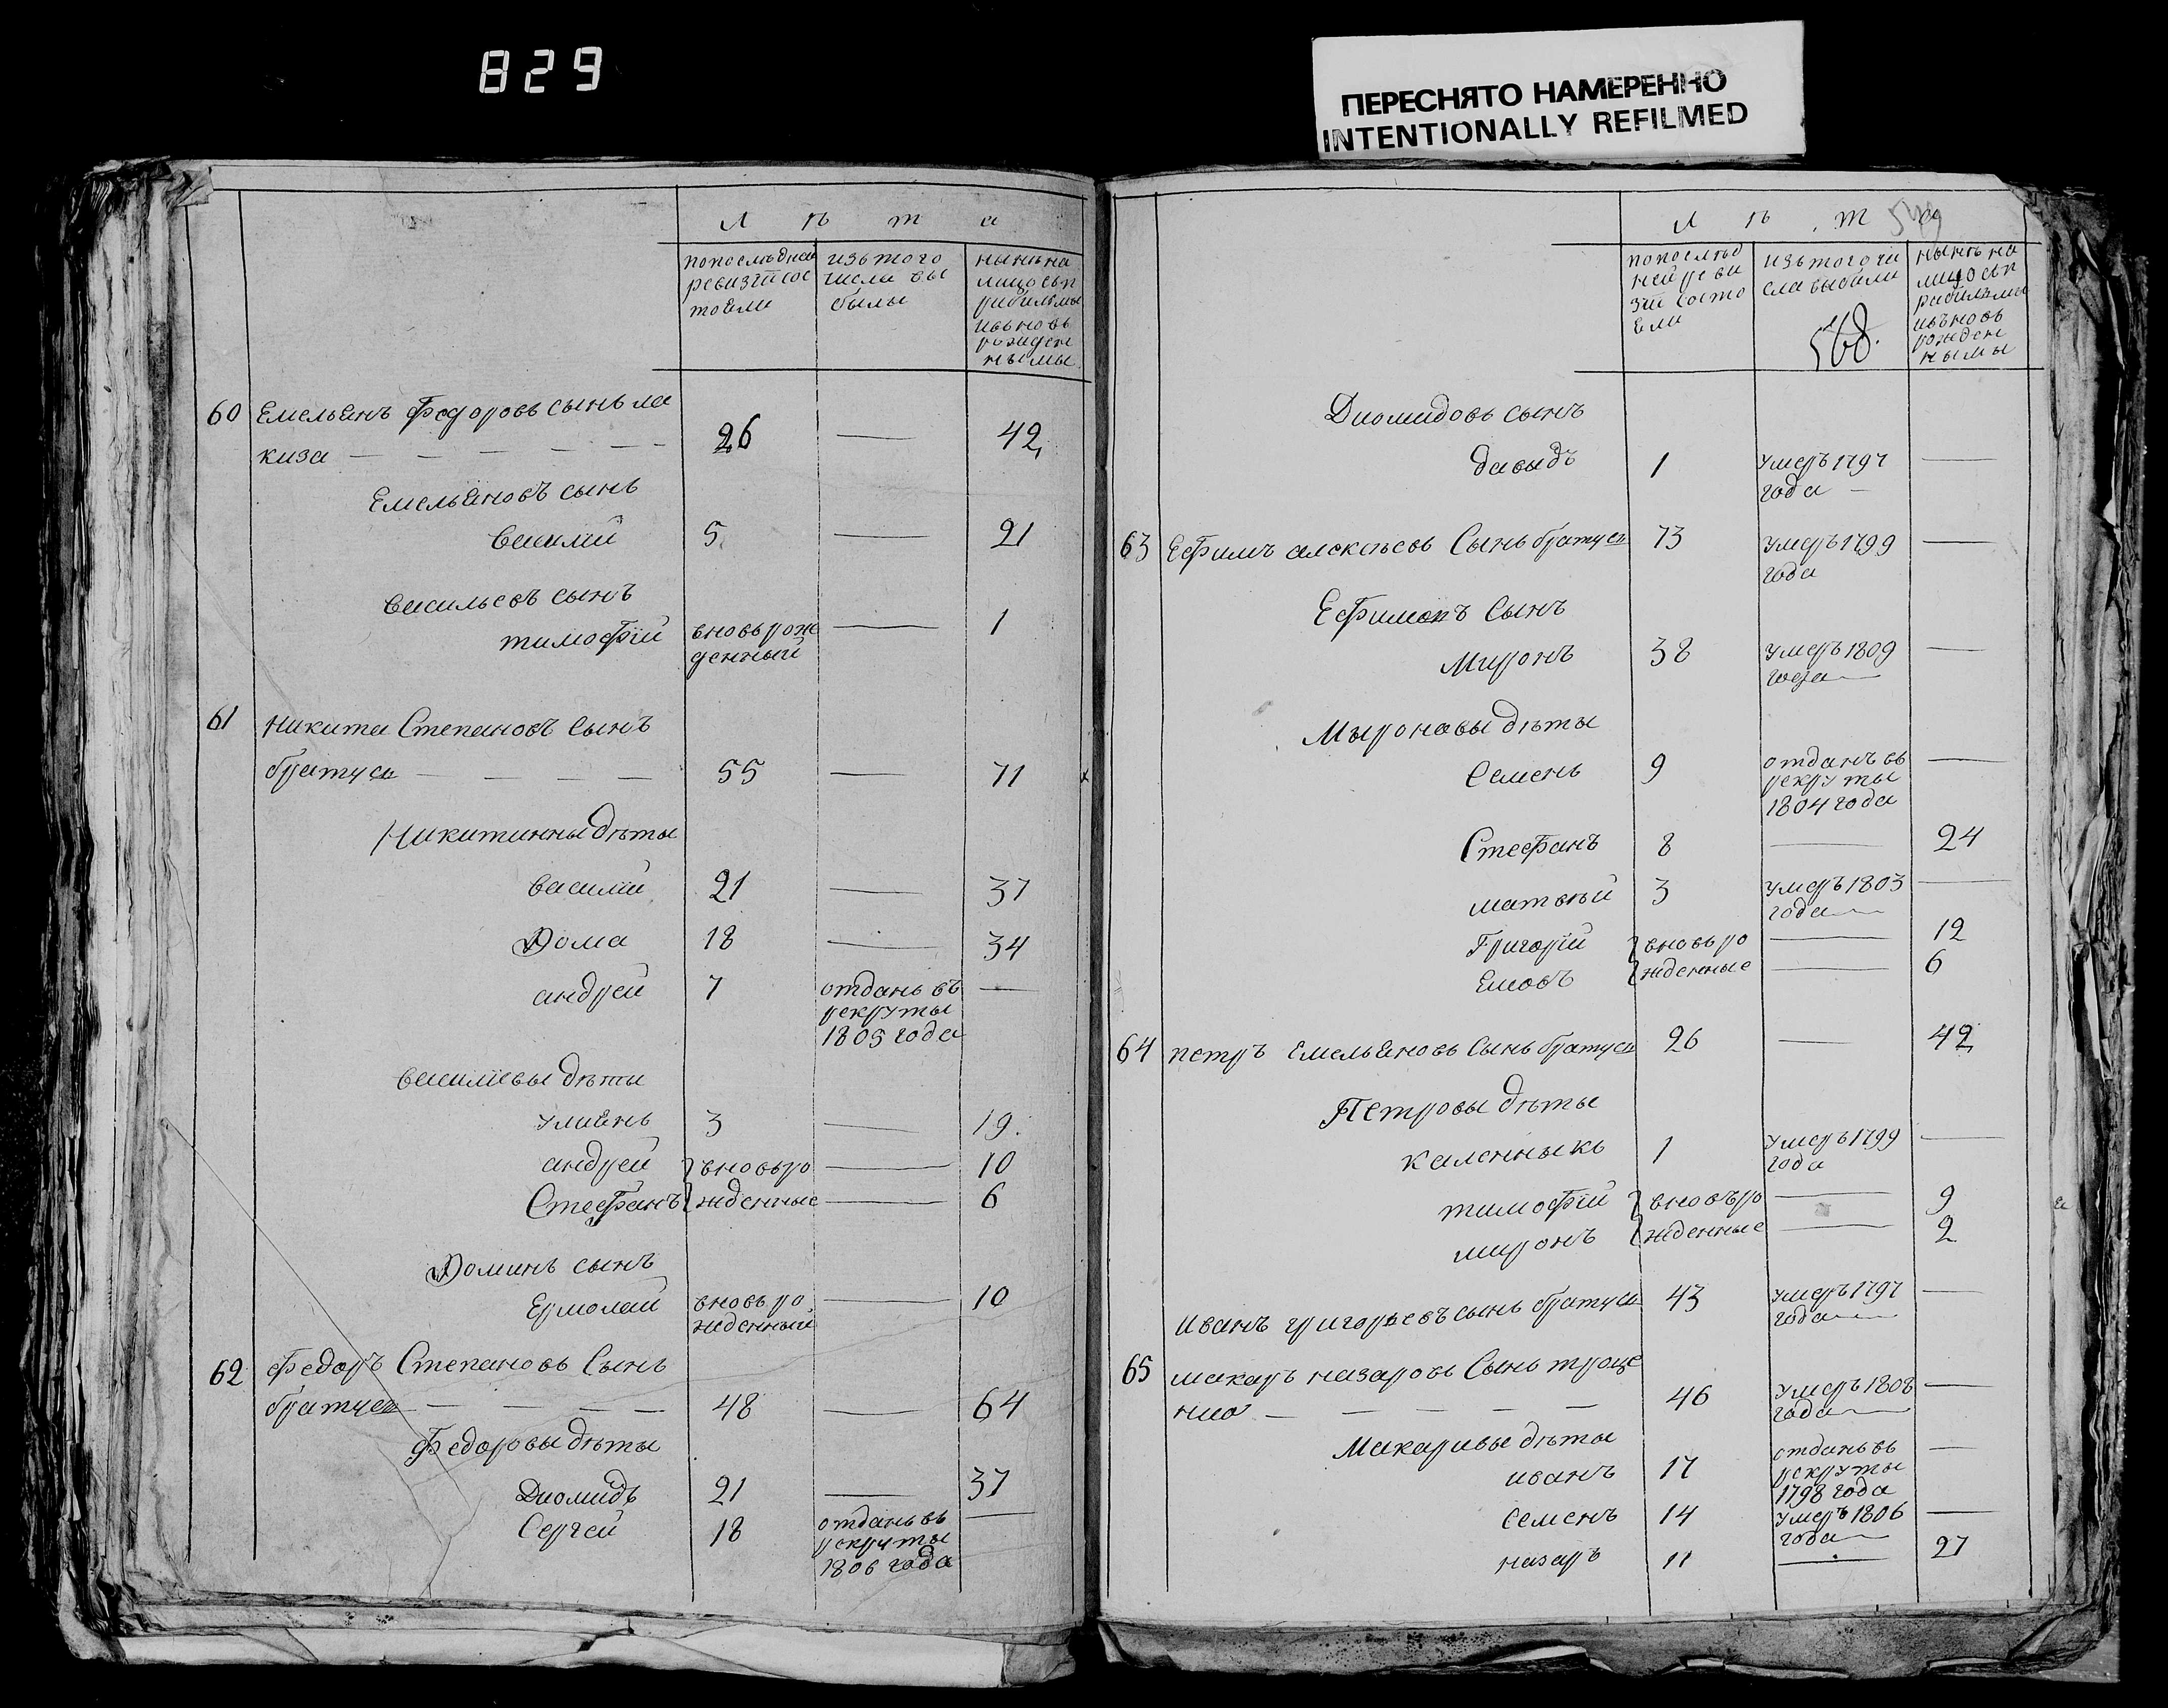 829
ПЕРЕСНЯТО НАМЕРЕННО
INTENTIONALLY REFILMED
Л ѣ т а
попослѣдней изътого нынѣна
ревизїи сос числа вы лицо съп
тояли былы рибылымы
ивьновь
рожден
нымы
60 Емельянъ Федоровъ сынъ ла
киза — 26 — 42
Емельяновъ сынъ
василїй 5 — 21
васильевъ сынъ
тимофїй вновьрож — 1
денный
61 никита Степановъ сынъ
братусь — 55 — 71
Никитинны дѣты
василїй 21 — 37
Фома 18 — 34
андрей 7 отданъ въ —
рекруты
1805 года
василїевы дѣти
улиянъ 3 — 19
андрей вновьро — 10
Стефанъ жденные — 6
Фоминъ сынъ
Ермолай вновь ро — 10
жденный
62 Федоръ Степановъ Сынъ
братусь — 48 — 64
Федоровы дѣты
Диомидъ 21 — 37
Сергей 18 отданъ въ —
рекруты
1806 года
Л ѣ т а
549
попослѣд изътого чи нынѣ на
ней реви сла выбыли лицо съп
зїи состо рибылымы
яли ивъновь
568 рожден
нымы
Диомидовъ сынъ
давыдъ 1 умеръ 1797 —
года —
63 Ефимъ алексѣевъ Сынъ братусь 73 умеръ 1799 —
года
Ефимовъ Сынъ
Миронъ 38 умеръ 1809 —
года
Мыроновы дѣты
Семенъ 9 отданъ въ —
рекруты
1804 года
Стефанъ 8 — 24
матвѣй 3 умеръ 1803 —
года
Григорїй вновьро — 12
жденные — 6
64 петръ Емельяновъ Сынъ братусь 26 — 42
Петровы дѣты
каленныкъ 1 умеръ 1799 —
года
тимофїй вновъро — 9
миронъ жденные — 2
иванъ григорьевъ сынъ братусь 43 умеръ 1797 —
года
65 макаръ назаровъ Сынъ троце
нко — 46 умеръ 1808 —
года
Макаривы дѣты
иванъ 17 отданъ въ —
рекруты
1798 года
семенъ 14 умеръ 1806 —
года
назаръ 11 — 27